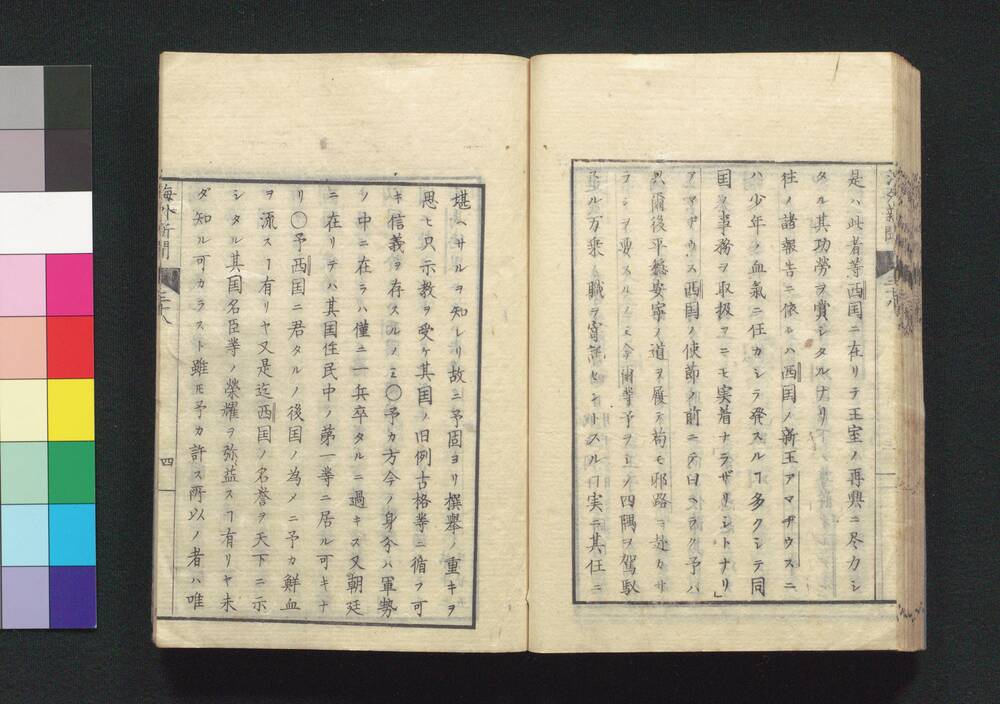 是ハ此者等西国ニ在リテ王室ノ再興ニ尽カシ
タル其功労ヲ賞シタルナリ
往ノ諸報告ニ依レハ西国ノ新王アマザウスニ
ハ少年ノ血氣ニ任カシテ発スルヿ多クシテ同
国ノ事務ヲ取扱フニモ実着ナラザリシトナリ」
アマザウス西国ノ使節ノ前ニテ曰ヘラク予ハ
爾後平穏安寧ノ道ヲ履テ苟モ邪路ニ赴カサ
ラシヲ要スルノミ今爾等予ヲシテ四隅ヲ駕馭
ル万乗ノ職ヲ寄託セントスルヿ実ニ其任ニ
堪ヘサルヲ知レリ故ニ予固ヨリ撰舉ノ重キヲ
思ヒ只示教ヲ受ケ其国ノ旧例古格等ニ循フ可
キ信義ヲ存スルノミ〇予カ方今ノ身分ハ軍勢
ノ中ニ在ラハ僅ニ一兵卒タルニ過キス又朝廷
ニ在リテハ其国住民中ノ第一等ニ居ル可キナ
リ〇予西国ニ君タルノ後国ノ為メニ予カ鮮血
ヲ流スヿ有リヤ又是迄西国ノ名誉ヲ天下ニ示
シタル其国名臣等ノ榮耀ヲ弥益スヿ有リヤ未
ダ知ル可カラスト雖𪜈予カ許ス所以ノ者ハ唯
海外新聞 三十八 四